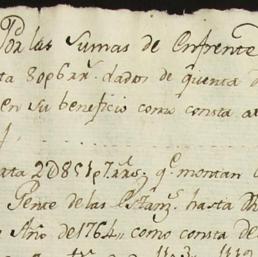 Por las Sumas de Enfrente
ta 80p6rrs. dados de quenta
en su beneficio como consta
ata 2D851p7rrs; qe. montan
Pente de las Estanzs. hasta
Año de 1764,, como consta de